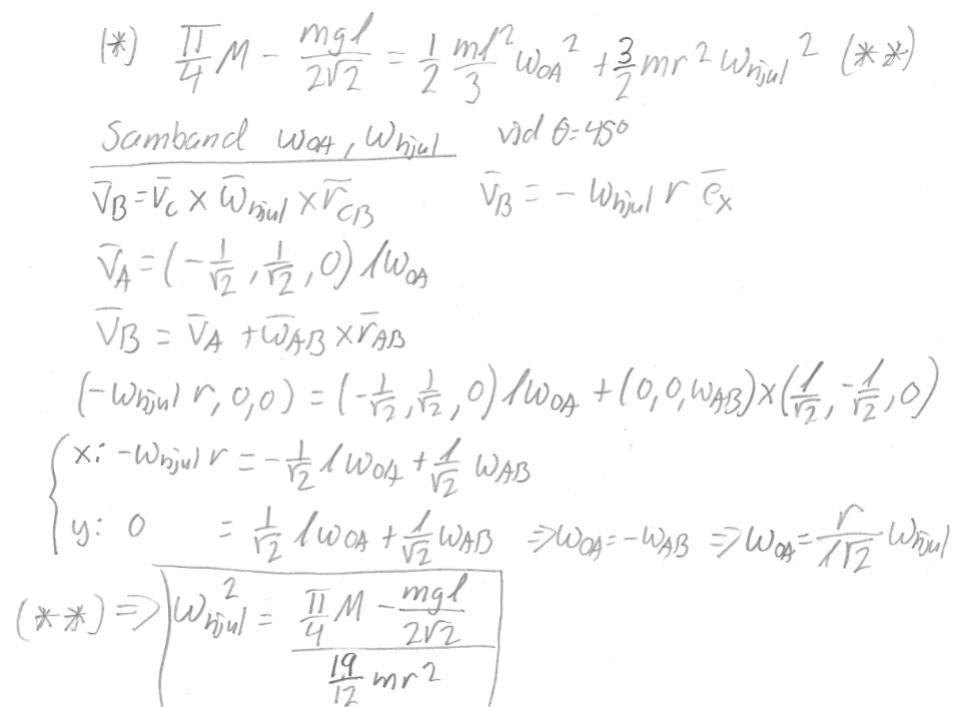 (*) π/4 M - mgl/2√2 = 1/2 ml²/3 ω_OA² + 3/2 mr² ω_hjul² (**)
Samband ω_OA, ω_hjul vid θ=45°
v̄_B = v̄_C × ω̄_hjul × r̄_CB v̄_B = - ω_hjul r ē_x
v̄_A = (-1/√2, 1/√2, 0) l ω_OA
v̄_B = v̄_A + ω̄_AB × r̄_AB
(-ω_hjul r, 0, 0) = (-1/√2, 1/√2, 0) l ω_OA + (0, 0, ω_AB) × (l/√2, -l/√2, 0)
x: -ω_hjul r = -1/√2 l ω_OA + l/√2 ω_AB
y: 0 = 1/√2 l ω_OA + l/√2 ω_AB ⇒ ω_OA = -ω_AB ⇒ ω_OA = r/l√2 ω_hjul
(**) ⇒ ω_hjul² = (π/4 M - mgl/2√2) / (19/12 mr²)